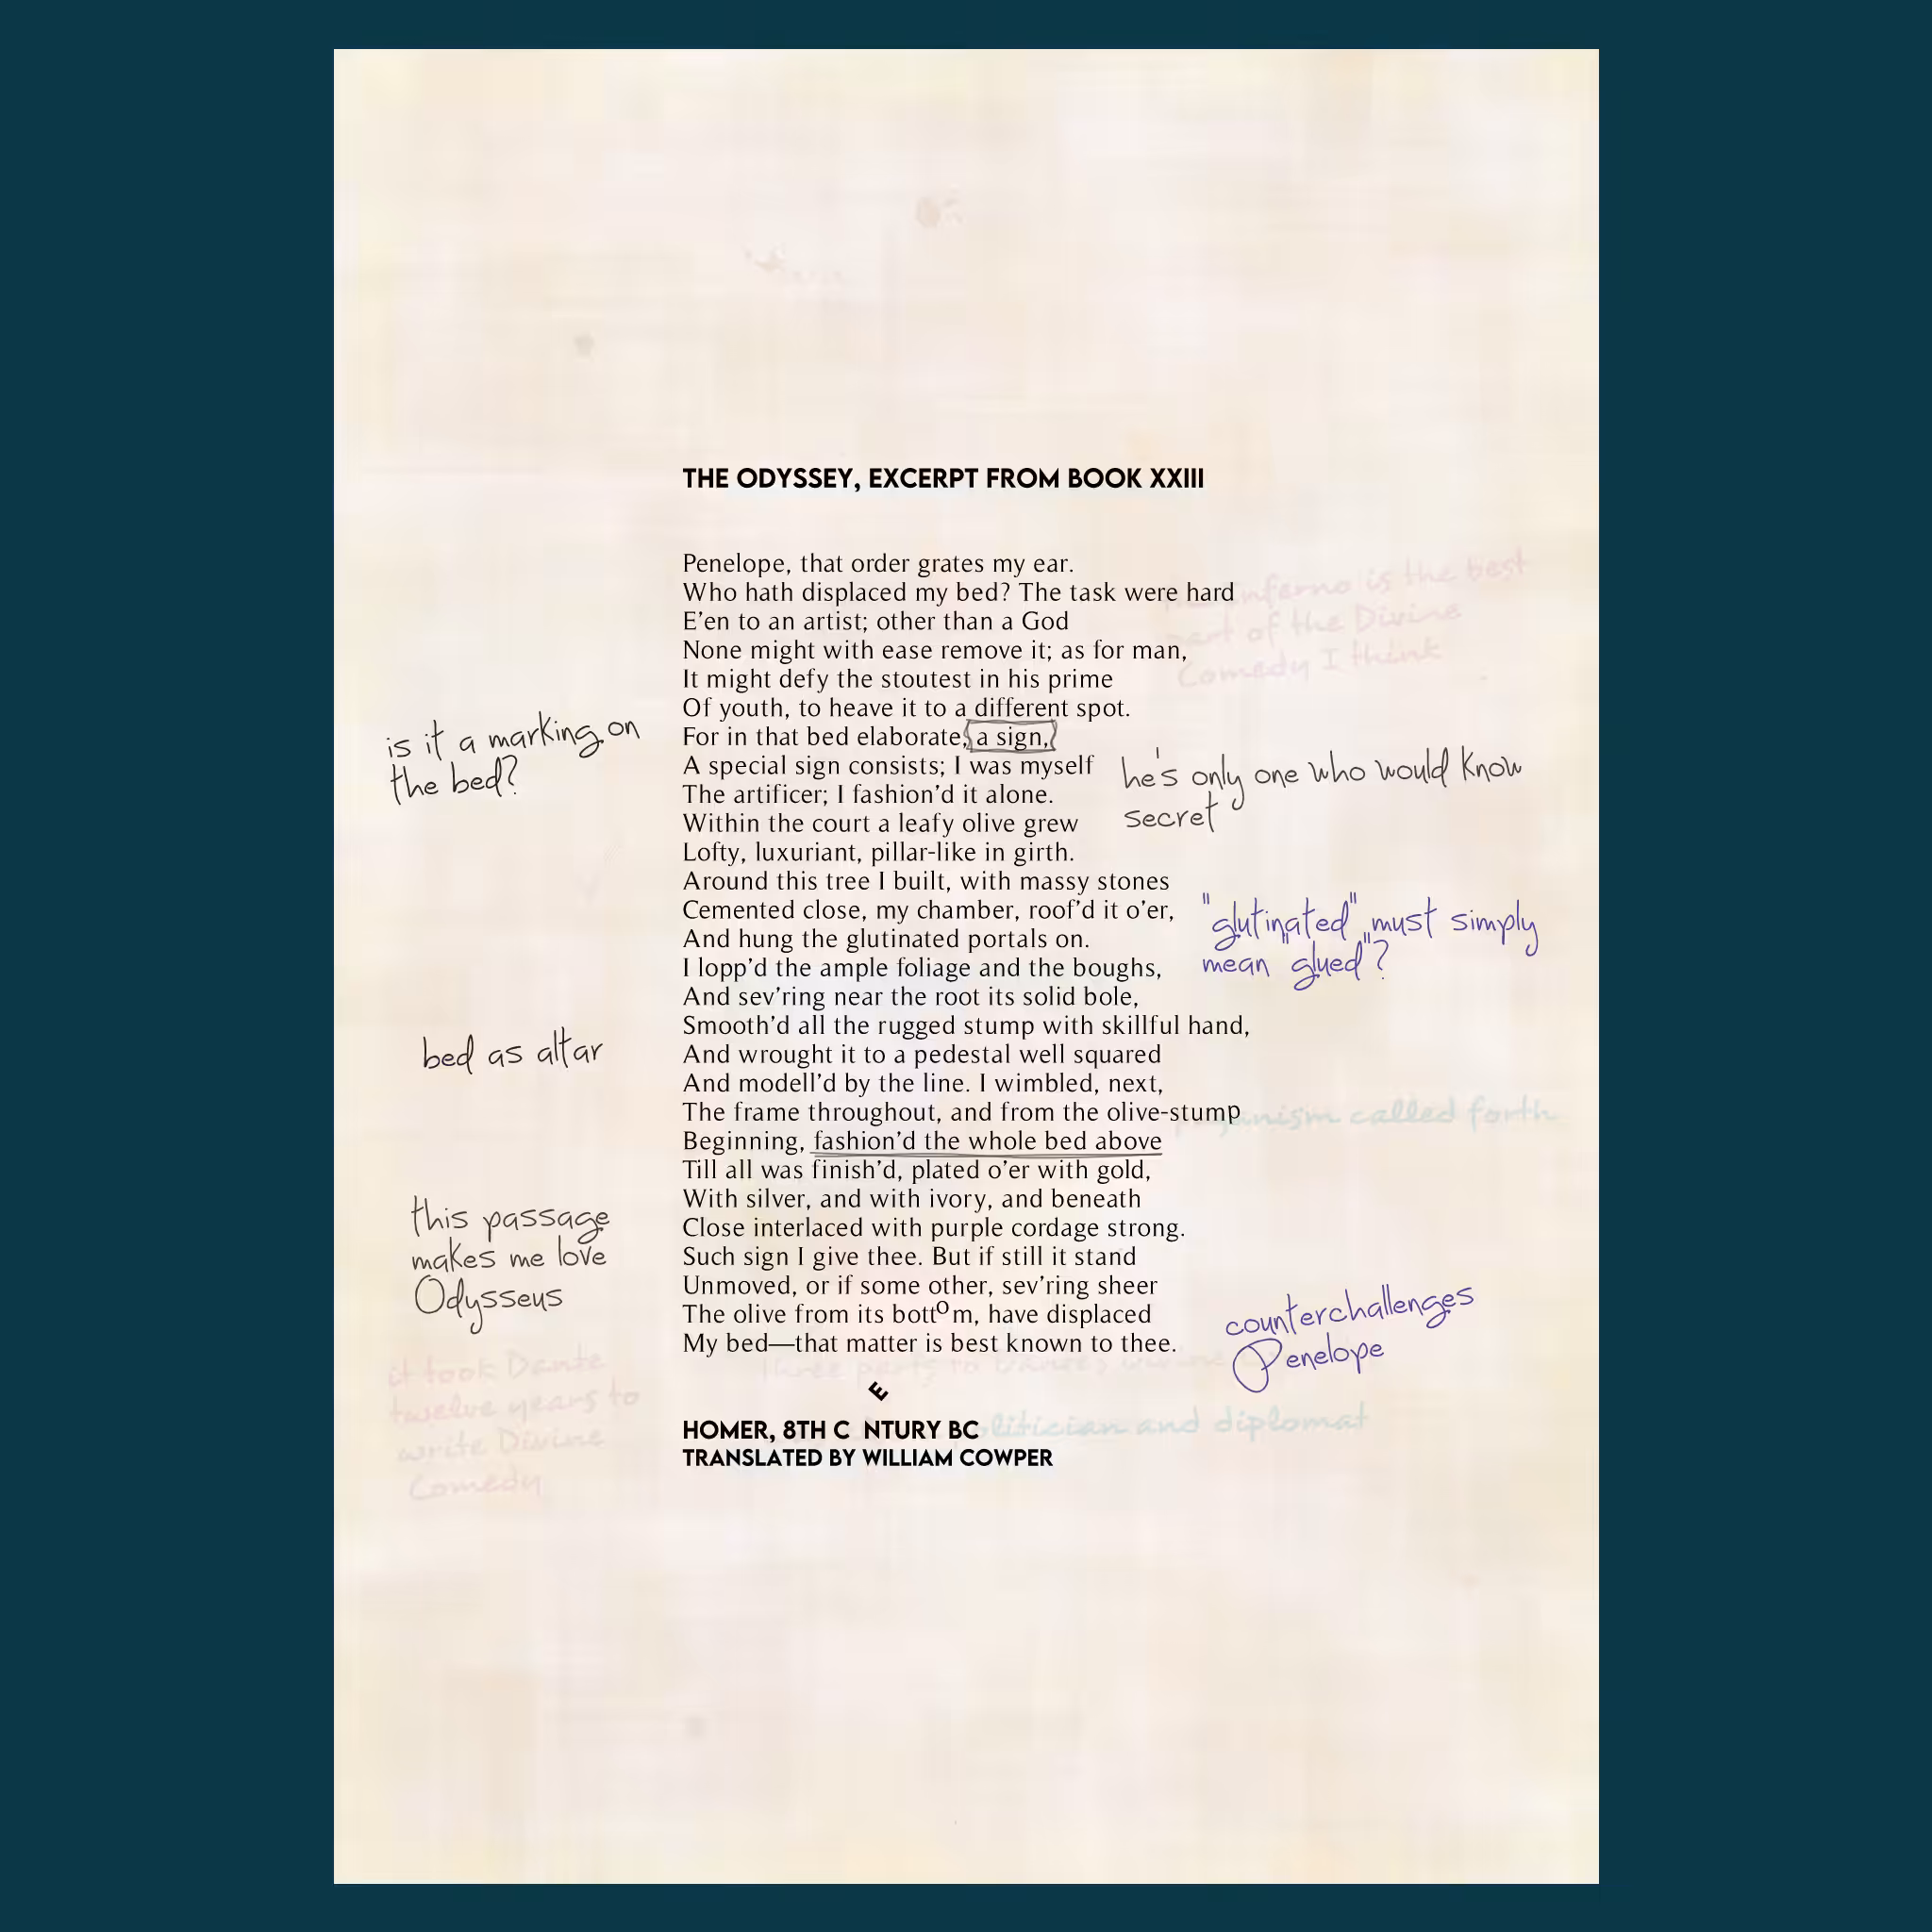 THE ODYSSEY, EXCERPT FROM BOOK XXIII
Penelope, that order grates my ear.
Who hath displaced my bed? The task were hard
E'en to an artist; other than a God
None might with ease remove it; as for man,
It might defy the stoutest in his prime
Of youth, to heave it to a different spot.
For in that bed elaborate, a sign,
A special sign consists; I was myself
The artificer; I fashion'd it alone.
Within the court a leafy olive grew
Lofty, luxuriant, pillar-like in girth.
Around this tree I built, with massy stones
Cemented close, my chamber, roof'd it o'er,
And hung the glutinated portals on.
I lopp'd the ample foliage and the boughs,
And sev'ring near the root its solid bole,
Smooth'd all the rugged stump with skillful hand,
And wrought it to a pedestal well squared
And modell'd by the line. I wimbled, next,
The frame throughout, and from the olive-stump
Beginning, fashion'd the whole bed above
Till all was finish'd, plated o'er with gold,
With silver, and with ivory, and beneath
Close interlaced with purple cordage strong.
Such sign I give thee. But if still it stand
Unmoved, or if some other, sev'ring sheer
The olive from its bottom, have displaced
My bed—that matter is best known to thee.
E
HOMER, 8TH C NTURY BC
TRANSLATED BY WILLIAM COWPER
is it a marking on
the bed?
bed as altar
this passage
makes me love
Odysseus
it took Dante
twelve years to
write Divine
Comedy
inferno is the best
part of the Divine
Comedy I think
he's only one who would know
secret
"glutinated" must simply
mean "glued"?
called forth
counterchallenges
Penelope
three parts to Dante's
politician and diplomat